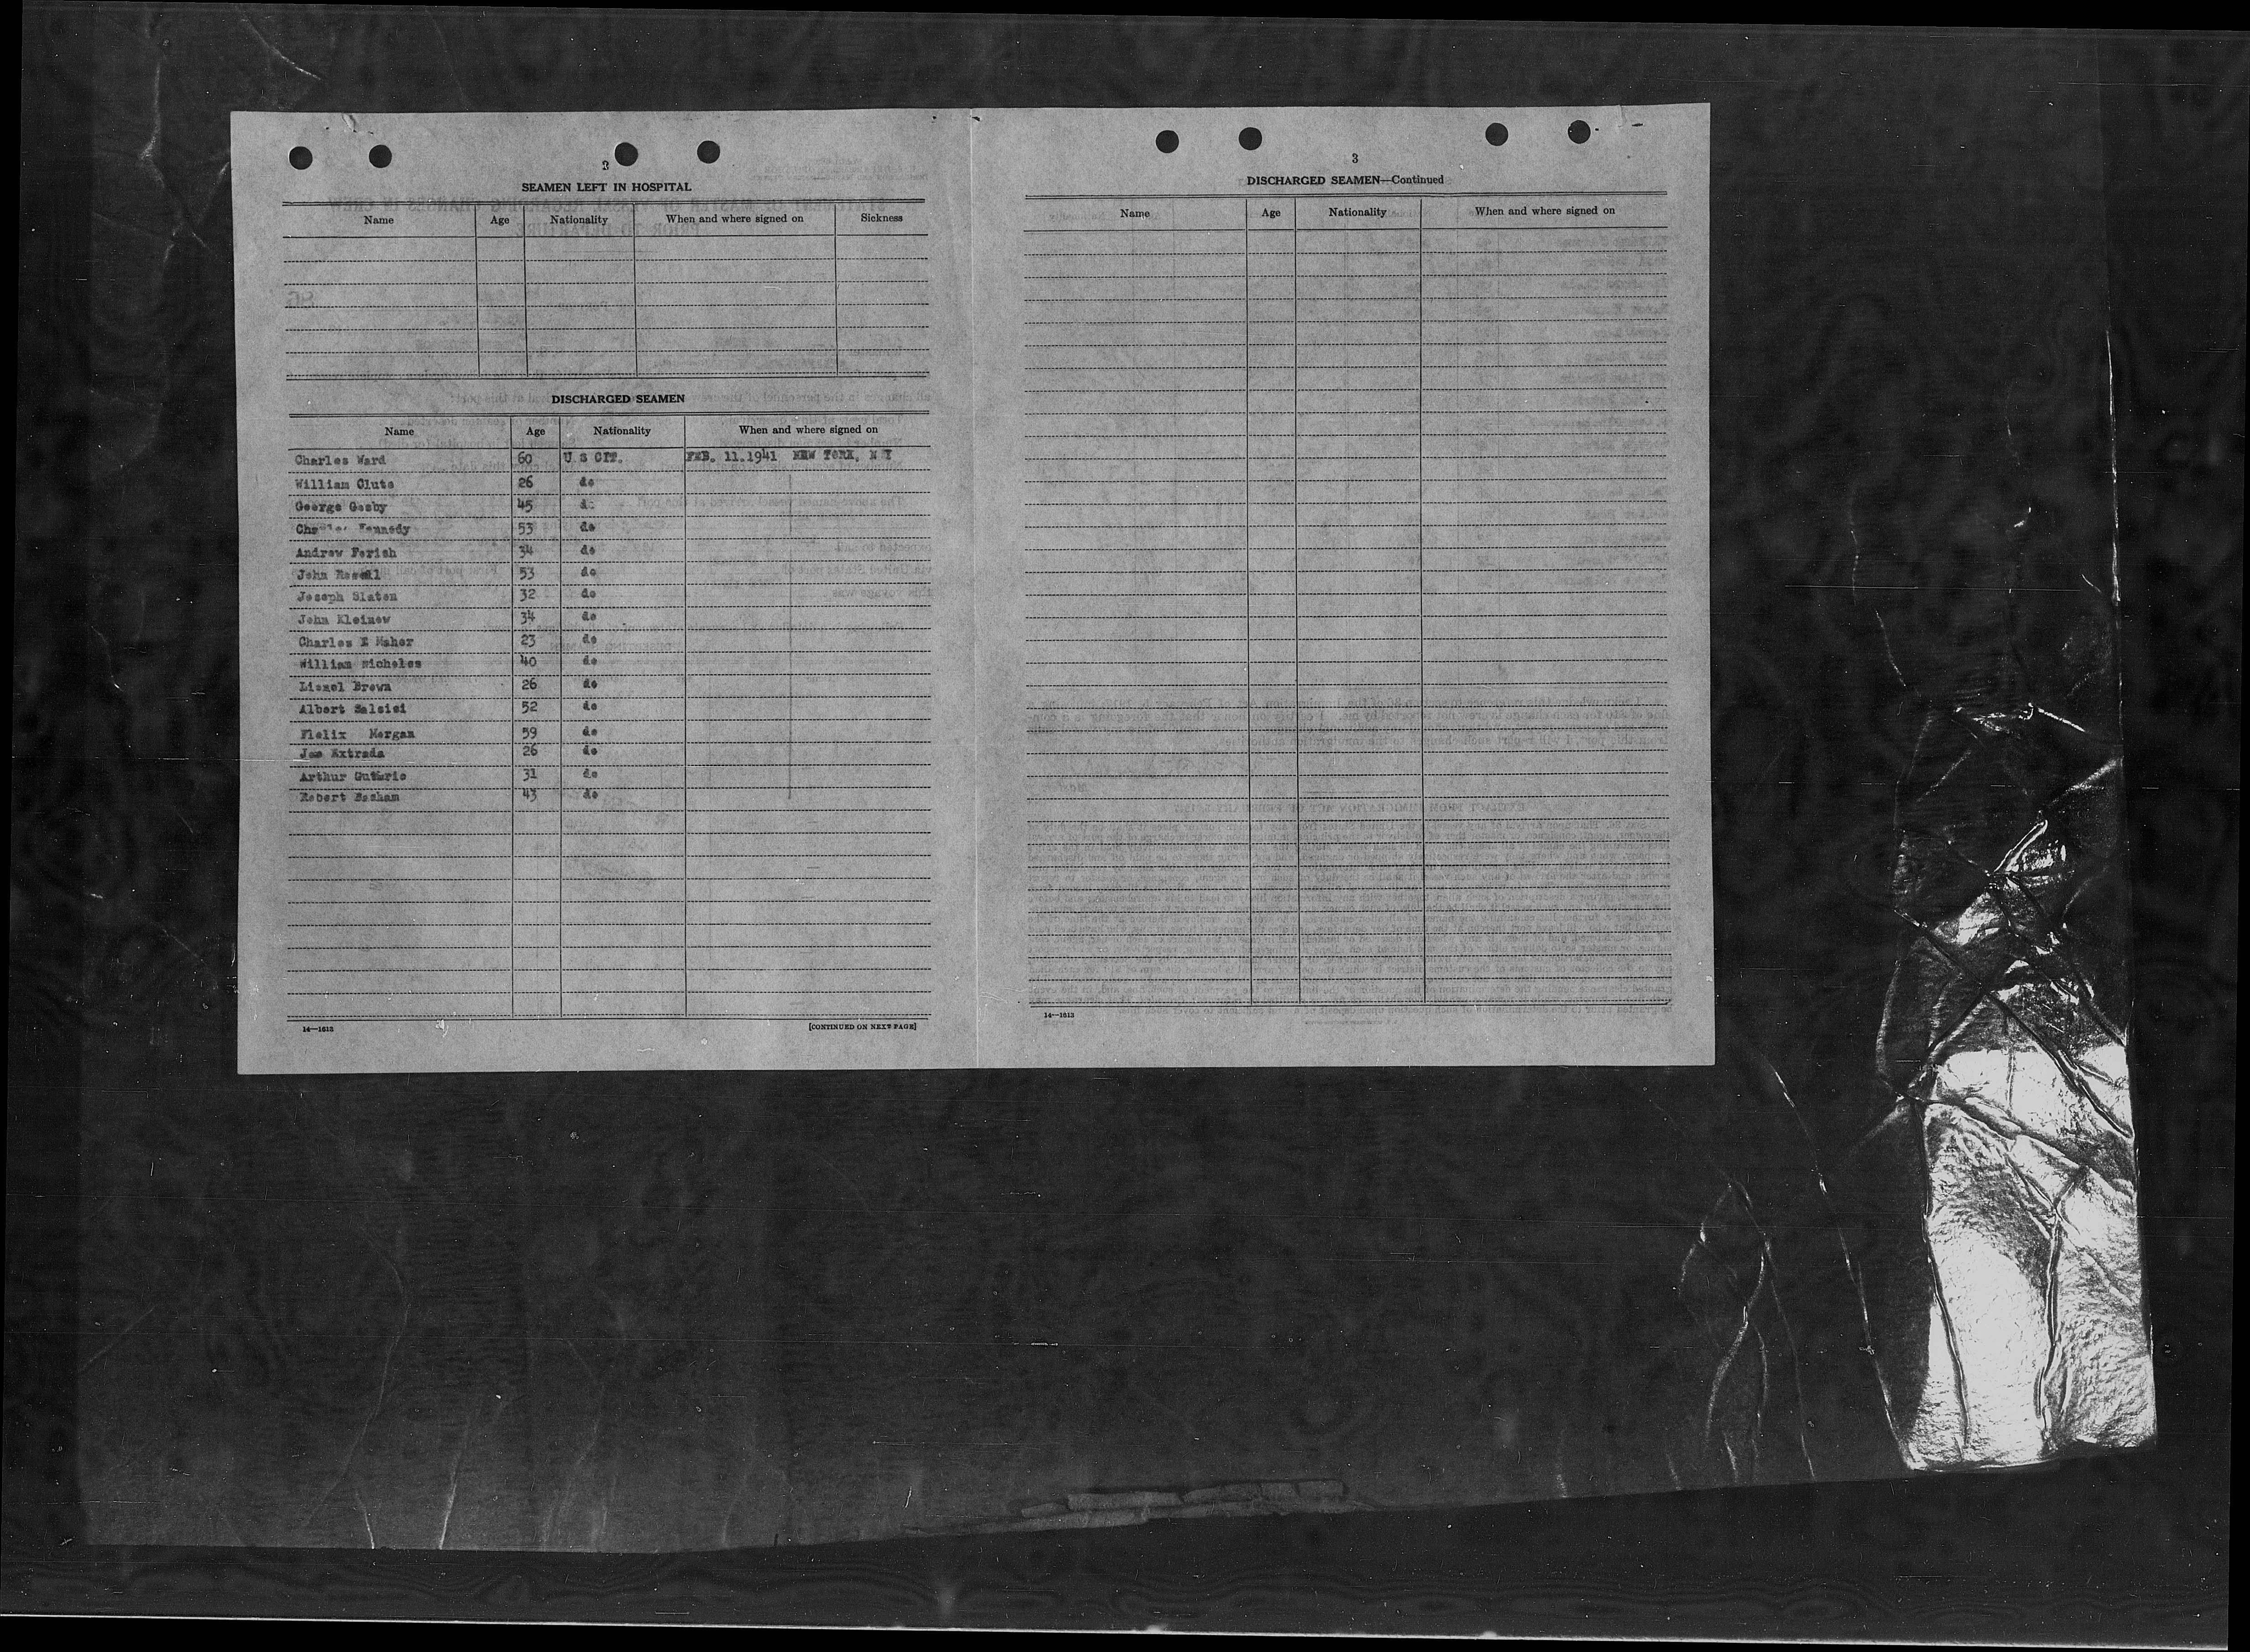 3
SEAMEN LEFT IN HOSPITAL
Name Age Nationality When and where signed on Sickness
DISCHARGED SEAMEN
Name Age Nationality When and where signed on
Charles Ward 60 U S CIT. FEB. 11.1941 NEW YORK, N Y
William Clute 26 do
George Gosby 45 do
Charles Kennedy 53 do
Andrew Ferish 34 do
John 53 do
Joseph Slaten 32 do
John Kleinow 34 do
Charles E Maher 23 do
William Nicholes 40 do
Lionel Brown 26 do
Albert Salsici 52 do
Flelix Morgan 59 do
Joe Extrada 26 do
Arthur Guthrie 31 do
Robert 43 do
14—1613 [CONTINUED ON NEXT PAGE]
3
DISCHARGED SEAMEN—Continued
Name Age Nationality When and where signed on
14—1613